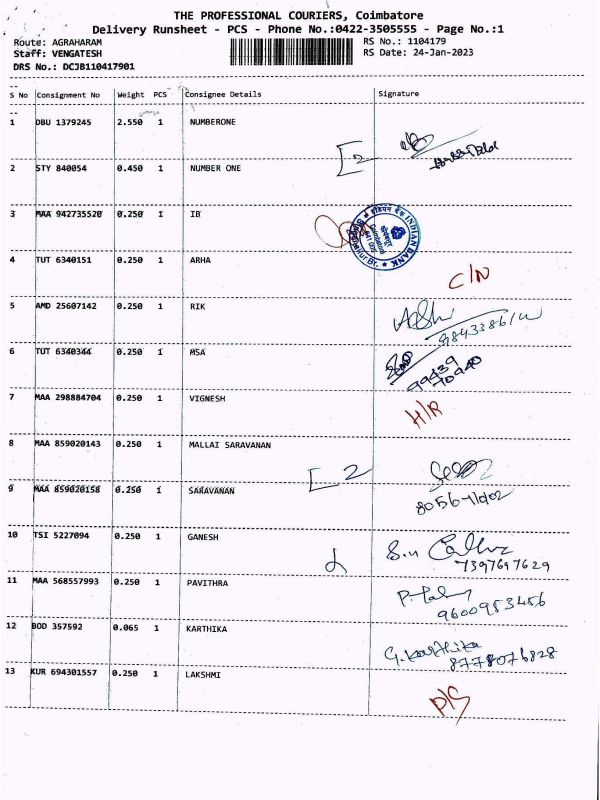 THE PROFESSIONAL COURIERS, Coimbatore
Delivery Runsheet - PCS - Phone No.:0422-3505555 - Page No.:1
Route: AGRAHARAM
Staff: VENGATESH
DRS No.: DCJB110417901
RS No.: 1104179
RS Date: 24-Jan-2023
S No Consignment No Weight PCS Consignee Details Signature
1 DBU 1379245 2.550 1 NUMBERONE
[2
2 STY 840054 0.450 1 NUMBER ONE
3 MAA 942735520 0.250 1 IB
इंडियन बैंक INDIAN BANK
4 TUT 6340151 0.250 1 ARHA
C/N
5 AMD 25607142 0.250 1 RIK
6 TUT 6340344 0.250 1 MSA
99439
70940
7 MAA 298884704 0.250 1 VIGNESH
H/R
8 MAA 859020143 0.250 1 MALLAI SARAVANAN
[2
9 MAA 859020158 0.250 1 SARAVANAN
10 TSI 5227094 0.250 1 GANESH
7397697629
11 MAA 568557993 0.250 1 PAVITHRA
9600983456
12 BOD 357592 0.065 1 KARTHIKA
G. Karthika
8778076828
13 KUR 694301557 0.250 1 LAKSHMI
D/S